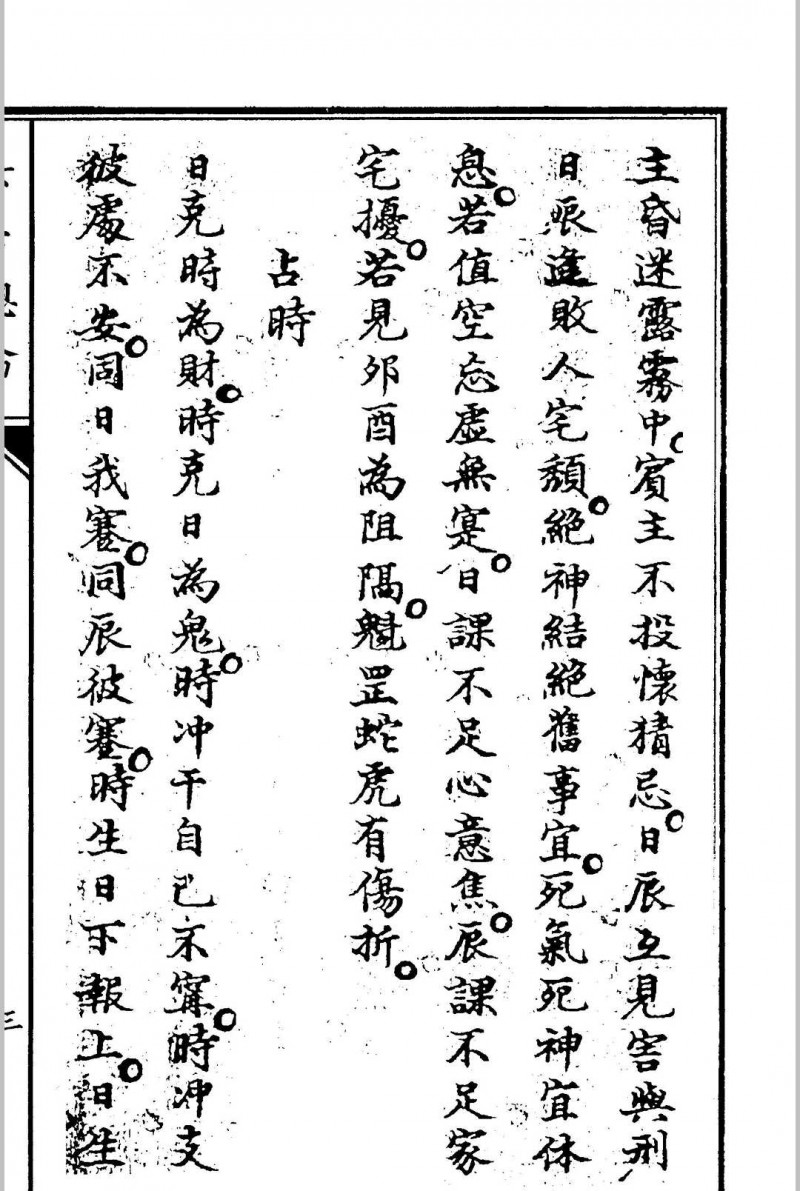 主昏迷露霧中○賓主不投懷猜忌○日辰互見害與刑
日辰逢敗人宅頹○絕神結絕舊事宜○死氣死神宜休
息○若值空忘虛無寔○日課不足心意焦○辰課不足家
宅擾○若見夘酉為阻隔○魁罡蛇虎有傷折○
占時
日克時為財○時克日為鬼○時冲干自己不寧○時冲支
彼處不安○同日我蹇○同辰彼蹇○時生日下報上○日生
三